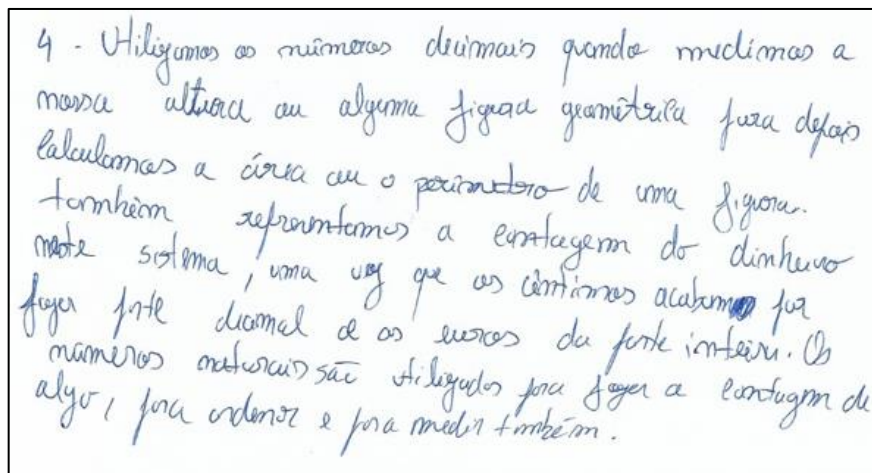 4 - Utilizamos os números decimais quando medimos a
nossa altura ou alguma figura geométrica para depois
calculamos a área ou o perímetro de uma figura.
também representamos a contagem do dinheiro
neste sistema, uma vez que os cêntimos acabam por
fazer parte decimal e os euros da parte inteira. Os
números naturais são utilizados para fazer a contagem de
algo, para ordenar e para medir também.